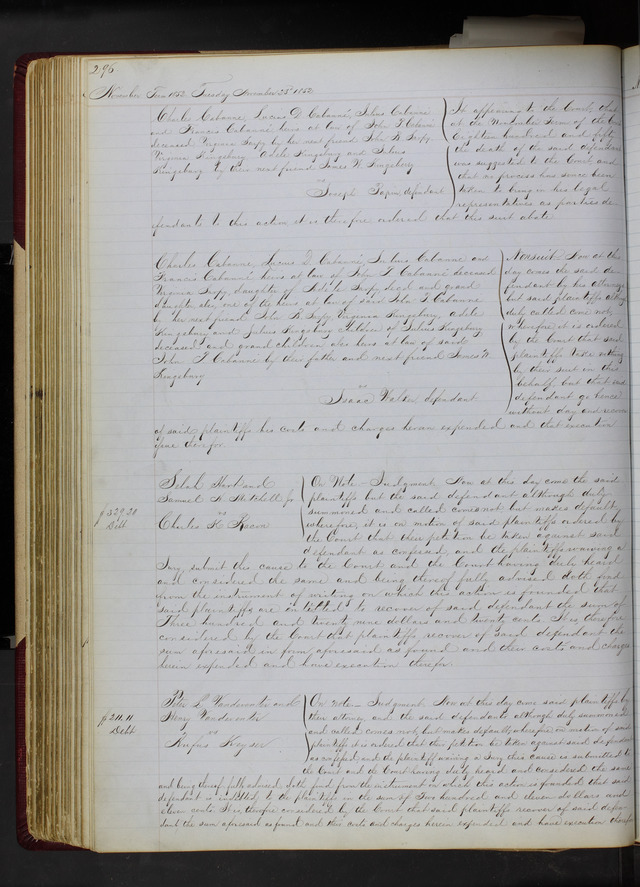 296
November Term 1852 Tuesday November 23d 1852
Charles Cabanne, Lucius D. Cabanné, Julius Cabanne
and Francis Cabanné heirs at law of John P Cabanne
deceased Virginia Sarpy by her next friend John B Sarpy
Virginia Kingsbury Adele Kingsbury and Julius
Kingsbury by their next friend James W Kingsbury
vs
Joseph Papin, defendant
It appearing to the Court, that
at the November Term of the Court
Eighteen hundred and fifty
the death of the said defendant
was suggested to the Court, and
that no process has since been
taken to bring in his legal
representatives as parties de-
fendants to this action it is therefore ordered that this suit abate
Charles Cabanne, Lucius D. Cabanné, Julius Cabanne and
Francis Cabanné heirs at law of John P Cabanné deceased
Virginia Sarpy, daughter of Adele Sarpy decd and grand
daughter also one of the heirs at law of said John P Cabanne
by her next friend John B Sarpy Virginia Kingsbury, Adele
Kingsbury and Julius Kingsbury children of Julia Kingsbury
deceased and grand children also heirs at law of said
John P Cabanne by their father and next friend James W.
Kingsbury
vs
Isaac Walker defendant
Nonsuit Now at this
day comes the said de-
fendant by his attorney
but said plaintiffs altho
duly called come not,
wherefore it is ordered
by the Court that said
plaintiffs take nothing
by their suit in this
behalf, but that said
defendant go hence
without day and recover
of said plaintiffs his costs and charges herein expended and that execution
issue therefor.
$329.20
Debt
and
Samuel A. Mitchell jr
vs
Charles H Bacon
On Note - Judgment. Now at this day come the said
plaintiffs but the said defendant although duly
summoned and called comes not but makes default,
wherefore, it is on motion of said plaintiffs ordered by
the Court that their petition be taken against said
defendant as confessed, and the plaintiffs waiving a
Jury, submit this cause to the Court and the Court having duly heard
and considered the same and being thereof fully advised doth find
from the instrument of writing on which this action is founded that
said plaintiffs are entitled to recover of said defendant the sum of
Three hundred and twenty nine dollars and twenty cents. It is therefore
considered by the Court that plaintiffs recover of said defendant the
sum aforesaid in form aforesaid as found and their costs and charges
herein expended and have execution therefor.
$211.11
Debt
Peter L. Vandervoort and
Henry Vandervoort
vs
Rufus Keyser
On note - Judgment. Now at this day come said plaintiffs by
their attorney and the said defendant although duly summoned
and called comes not, but makes default, wherefore on motion of said
plaintiffs it is ordered that their petition be taken against said defendant
as confessed and the plaintiffs waiving a Jury this cause is submitted to
the Court and the Court having duly heard and considered the same
and being thereof fully advised, doth find from the instrument on which this action is founded that said
defendant is indebted to the plaintiffs in the sum of Two hundred and eleven dollars and
eleven cents. It is therefore considered by the Court that said plaintiffs recover of said defen
dant the sum aforesaid as found and their costs and charges herein expended and have execution therefor